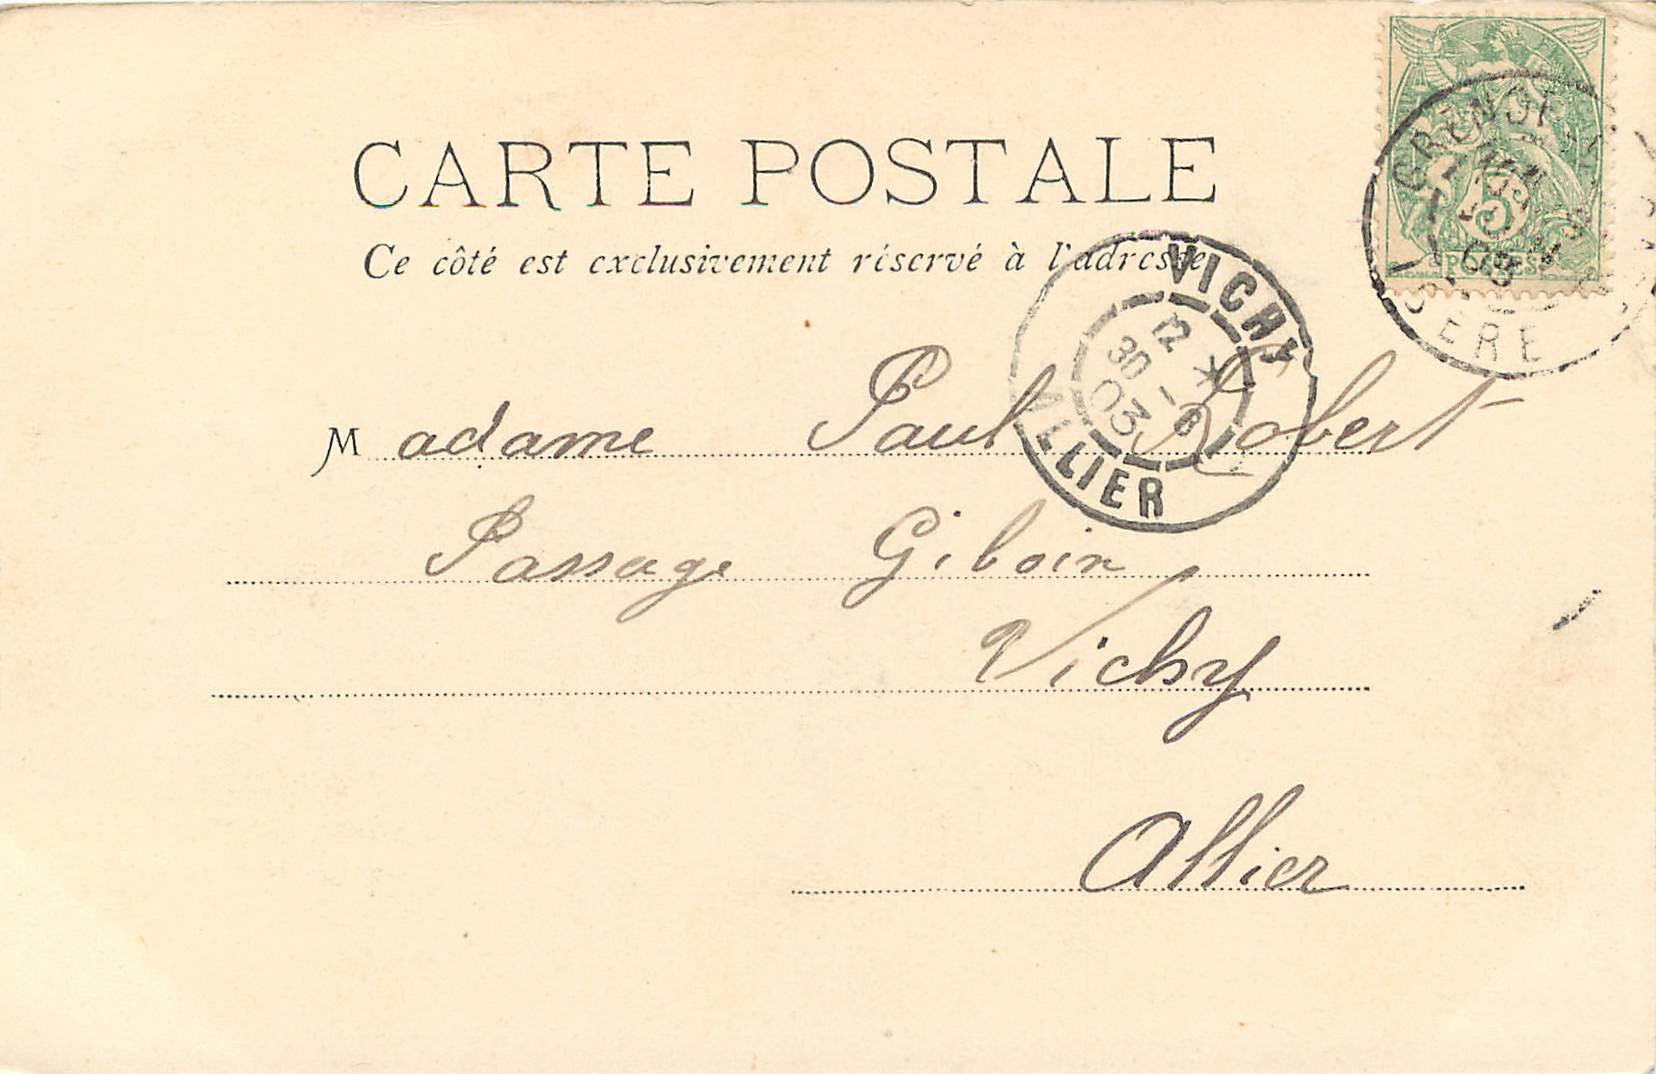 CARTE POSTALE
Ce côté est exclusivement réservé à l'adresse
Madame Paul Robert
Passage Giboin
Vichy
Allier
VICHY
12
30 - 6
03
ALLIER
ISERE
5
POSTES